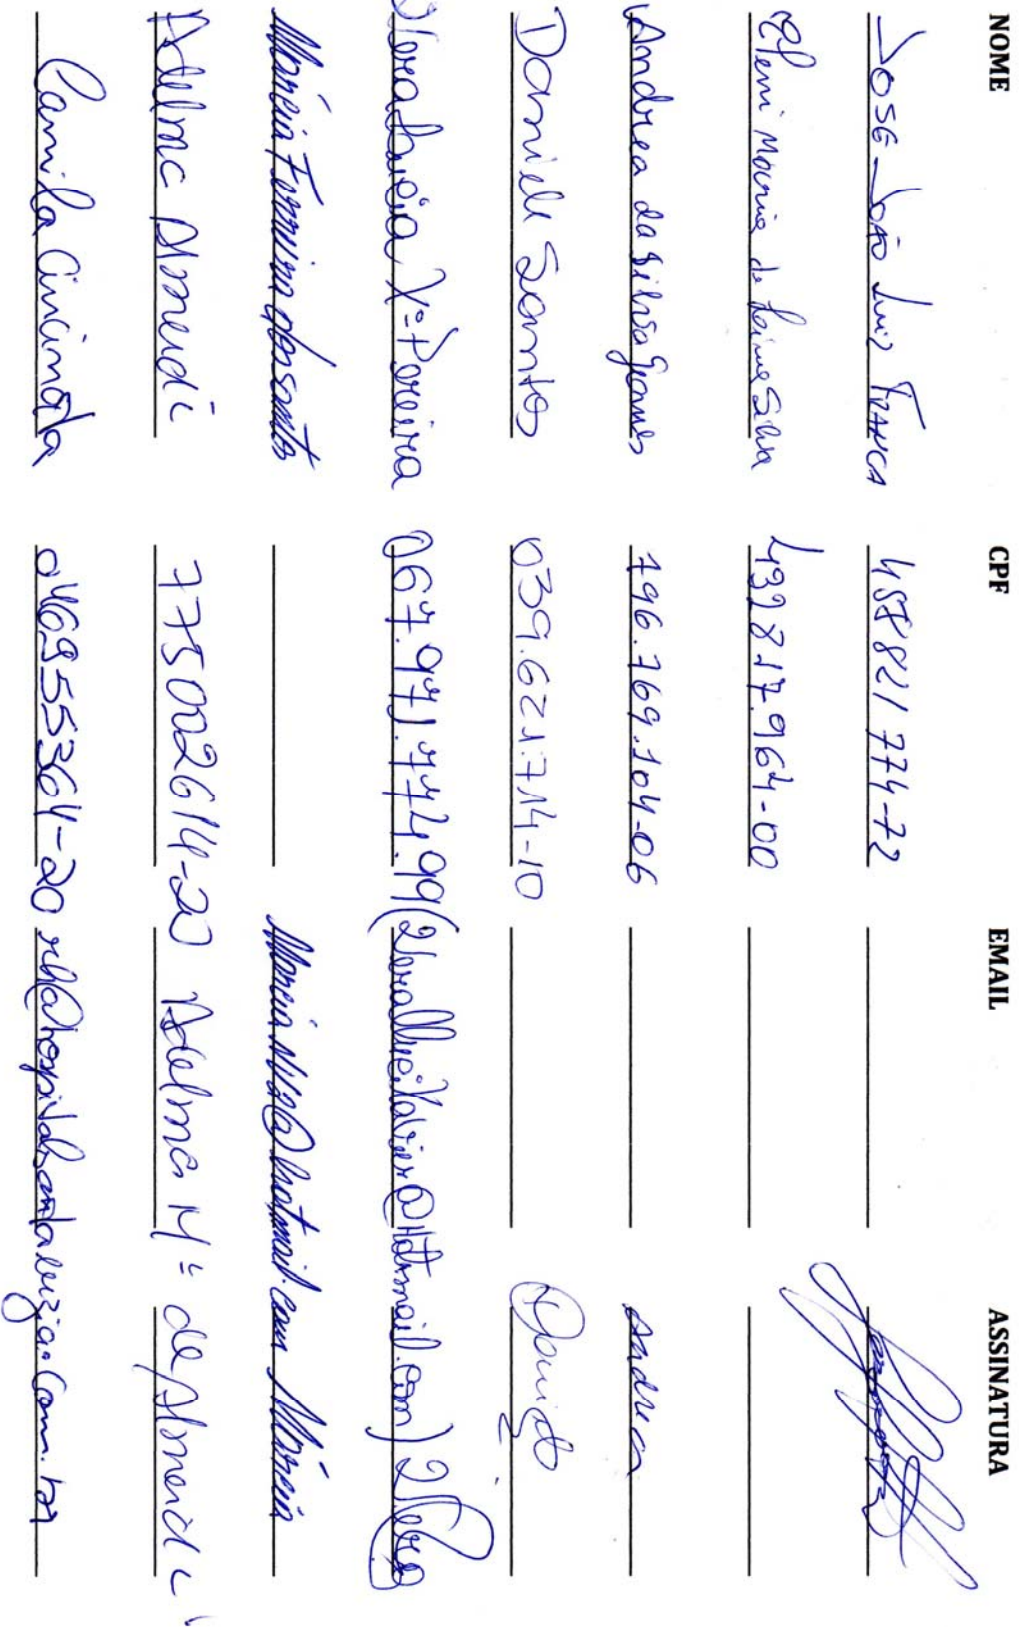 NOME CPF EMAIL ASSINATURA
JOSE JOÃO LUIS FRANCA 458821774-72
Eleni Maria de Lima Silva 493217.964-00
Andrea da Silva Gomes 796.769.104-06 Andrea
Daniele Santos 039.621.714-10 Daniele
Vera Lucia Xª Pereira 067.971.774.99 @Hotmail.com) Vera
Márcia Ferreira dos Santos @hotmail.com Márcia
Adelma Almeida 775002614-20 Adelma Mª de Almeida
Camila 046955364-20 rh@hospitalsantaluzia.com.br